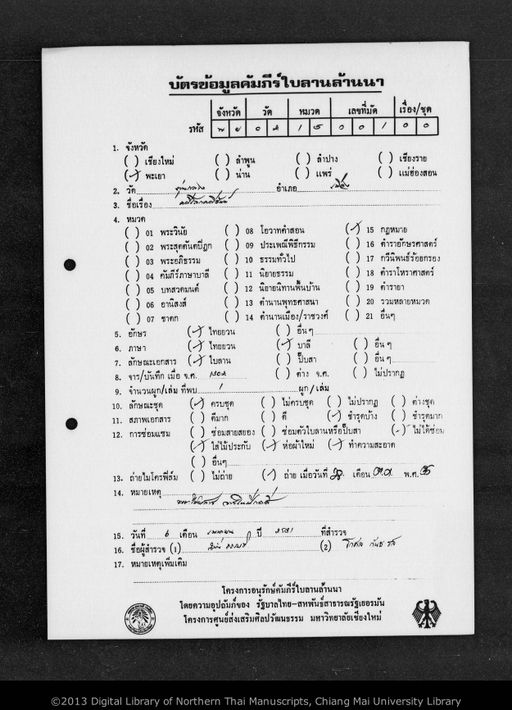 บัตรข้อมูลคัมภีร์ใบลานล้านนา
จังหวัด วัด หมวด เลขที่มัด เรื่อง/ชุด
รหัส พ ย ๐ ๘ 1 5 0 0 1 0 0
1. จังหวัด
( ) เชียงใหม่ ( ) ลำพูน ( ) ลำปาง ( ) เชียงราย
(✓) พะเยา ( ) น่าน ( ) แพร่ ( ) แม่ฮ่องสอน
2. วัด อำเภอ เมือง
3. ชื่อเรื่อง
4. หมวด
( ) 01 พระวินัย ( ) 08 โอวาทคำสอน (✓) 15 กฎหมาย
( ) 02 พระสุตตันตปิฎก ( ) 09 ประเพณีพิธีกรรม ( ) 16 ตำราอักษรศาสตร์
( ) 03 พระอภิธรรม ( ) 10 ธรรมทั่วไป ( ) 17 กวีนิพนธ์ร้อยกรอง
( ) 04 คัมภีร์ภาษาบาลี ( ) 11 นิยายธรรม ( ) 18 ตำราโหราศาสตร์
( ) 05 บทสวดมนต์ ( ) 12 นิยายนิทานพื้นบ้าน ( ) 19 ตำรายา
( ) 06 อานิสงส์ ( ) 13 ตำนานพุทธศาสนา ( ) 20 รวมหลายหมวด
( ) 07 ชาดก ( ) 14 ตำนานเมือง/ราชวงศ์ ( ) 21 อื่นๆ
5. อักษร (✓) ไทยยวน ( ) อื่นๆ
6. ภาษา (✓) ไทยยวน (✓) บาลี ( ) อื่นๆ
7. ลักษณะเอกสาร (✓) ใบลาน ( ) ปั๊บสา ( ) อื่นๆ
8. จาร/บันทึก เมื่อ จ.ศ. ( ) ต่าง จ.ศ. ( ) ไม่ปรากฏ
9. จำนวนผูก/เล่ม ที่พบ 1 ผูก/เล่ม
10. ลักษณะชุด (✓) ครบชุด ( ) ไม่ครบชุด ( ) ไม่ปรากฏ ( ) ต่างชุด
11. สภาพเอกสาร ( ) ดีมาก ( ) ดี (✓) ชำรุดบ้าง ( ) ชำรุดมาก
12. การซ่อมแซม ( ) ซ่อมสายสยอง ( ) ซ่อมตัวใบลานหรือปั๊บสา (✓) ไม่ได้ซ่อม
(✓) ใส่ไม้ประกับ (✓) ห่อผ้าใหม่ (✓) ทำความสะอาด
( ) อื่นๆ
13. ถ่ายไมโครฟิล์ม ( ) ไม่ถ่าย (✓) ถ่าย เมื่อวันที่ เดือน พ.ศ.
14. หมายเหตุ
15. วันที่ 6 เดือน เมษายน ปี ที่สำรวจ
16. ชื่อผู้สำรวจ (1) (2)
17. หมายเหตุเพิ่มเติม
โครงการอนุรักษ์คัมภีร์ใบลานล้านนา
โดยความอุปถัมภ์ของ รัฐบาลไทย-สหพันธ์สาธารณรัฐเยอรมัน
โครงการศูนย์ส่งเสริมศิลปวัฒนธรรม มหาวิทยาลัยเชียงใหม่
©2013 Digital Library of Northern Thai Manuscripts, Chiang Mai University Library